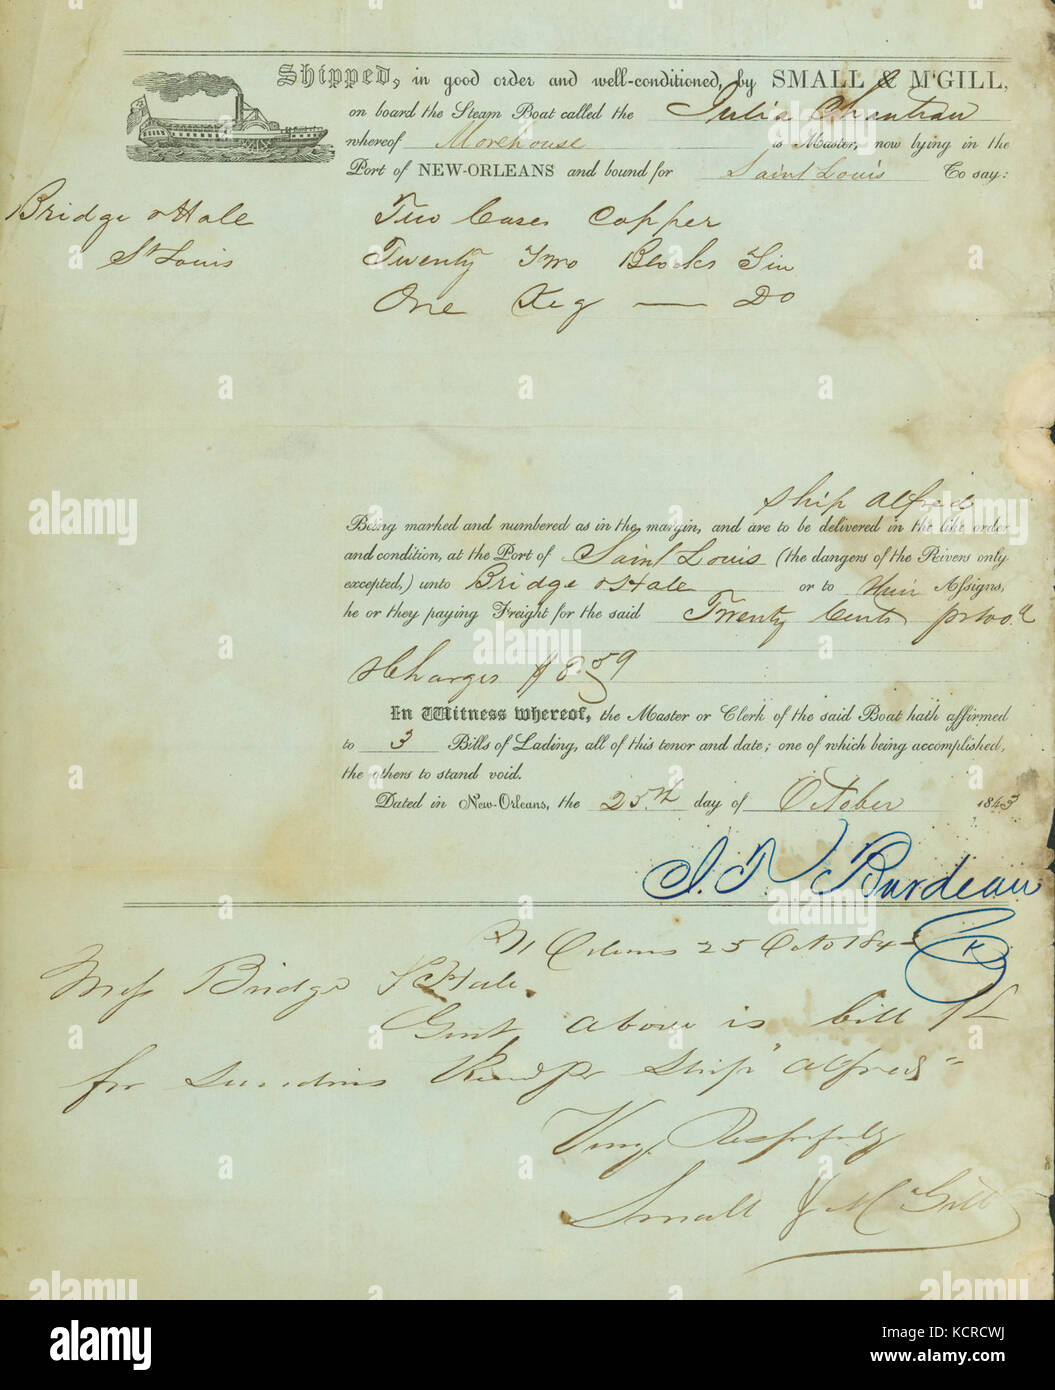 Shipped, in good order and well-conditioned, by SMALL & McGILL,
on board the Steam Boat called the Julia Chouteau
whereof Morehouse is Master, now lying in the
Port of NEW-ORLEANS and bound for Saint Louis To say:
Bridge & Hale
St Louis
Two Cases Copper
Twenty Two Blocks Tin
One Keg — Do
Ship Alfred
Being marked and numbered as in the margin, and are to be delivered in the like order
and condition, at the Port of Saint Louis (the dangers of the Rivers only
excepted,) unto Bridge & Hale or to their Assigns,
he or they paying Freight for the said Twenty Cents pr 100.
& Charges $8.59
In Witness whereof, the Master or Clerk of the said Boat hath affirmed
to 3 Bills of Lading, all of this tenor and date; one of which being accomplished,
the others to stand void.
Dated in New-Orleans, the 25th day of October 1843
Burdeau
N Orleans 25 Octo 1843
Mess Bridge & Hale
Gent, above is bill
for Sundries per Ship "Alfred"
Very Respectfully
Small & McGill
alamy
a
alamy
Image ID: KCRCWJ
www.alamy.com